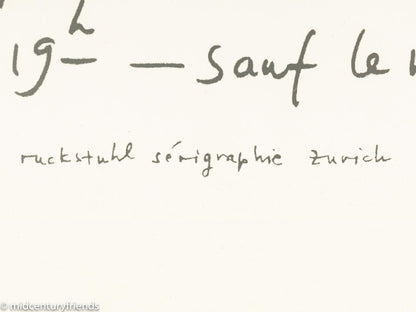 19h — sauf le
ruckstuhl sérigraphie zurich
© midcenturyfriends